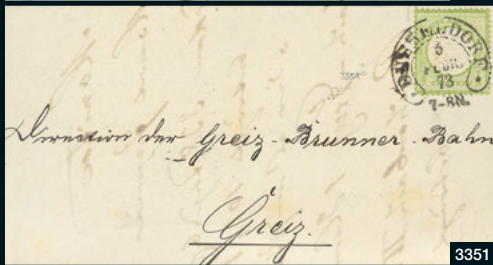 DÜSSELDORF
5
73
7-8N.
3351
Direction der Greiz-Brunner-Bahn
Greiz.
3351